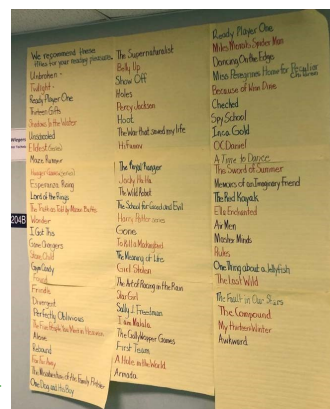 We recommend these
titles for your reading pleasures.
Unbroken -
Twilight -
Ready Player One
Thirteen Gifts
Shadows In the Water
Undecided
Eldest
Maze Runner
Hunger Games
Esperanza Rising
Lord of the Rings
The Truth as Told by Mason Buttle
Wonder
I Got This
Game Changers
Jane, Gold
Gym Candy
Found
Frindle
Divergent
Perfectly Oblivious
The Five People You Meet in Heaven
Alone
Rebound
Far Far Away
The Misadventures of the Family Fletcher
One Dog and His Boy
204B
The Supernaturalist
Belly Up
Show Off
Holes
Percy Jackson
Hoot
The War that saved my life
The Royal Ranger
The Wild Robot
The School for Good and Evil
Harry Potter
Gone
To Kill a Mockingbird
The Meaning of Life
Girl Stolen
The Art of Racing in the Rain
Star Girl
Sally J. Freedman
I am Malala
The Candy Shop
First Team
A Hole in the World
Armada
Ready Player One
Miles Morales Spider Man
Dancing On the Edges
Miss Peregrines Home for Peculiar
Children
Because of Winn Dixie
Checked
Spy School
Inca Gold
OCDaniel
A Time to Dance
The Sword of Summer
Memoirs of an Imaginary Friend
The Red Kayak
Ella Enchanted
Air Men
Master Minds
Rules
One Thing about a Jellyfish
The Last Wild
The Fault in Our Stars
The Compound
My Thirteen Winter
Awkward